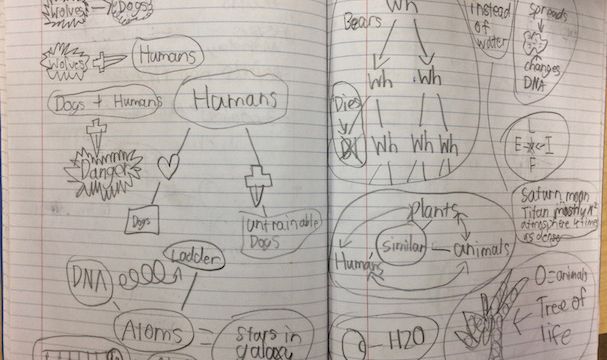 Wolves
Dogs
Wolves
Humans
Dogs + Humans
Humans
Dangor
Dogs
untrainable
Dogs
Ladder
DNA
Atoms
=
Stars in
Galaxy
Wh
Bears
Wh Wh
Dies
Wh Wh Wh
plants
similar
animals
Humans
H2O
instead
of
water
spreads
changes
DNA
L
E I
F
Saturn moon
Titan mostly N²
atmosphere 4 times
as dense
O = animals
Tree of
life